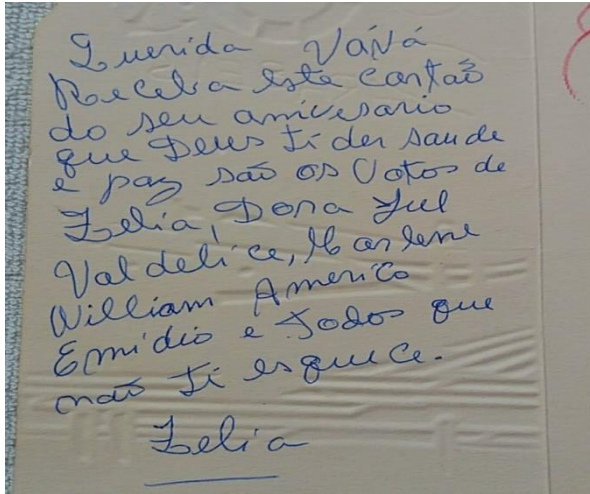 Querida Vává
Receba este cartão
do seu anivesario
que Deus ti der saude
e paz são os Votos de
Zelia, Dona Jul
Valdelice, Marlene
William Americo
Emidio e Todos que
não ti esquece.
Zelia